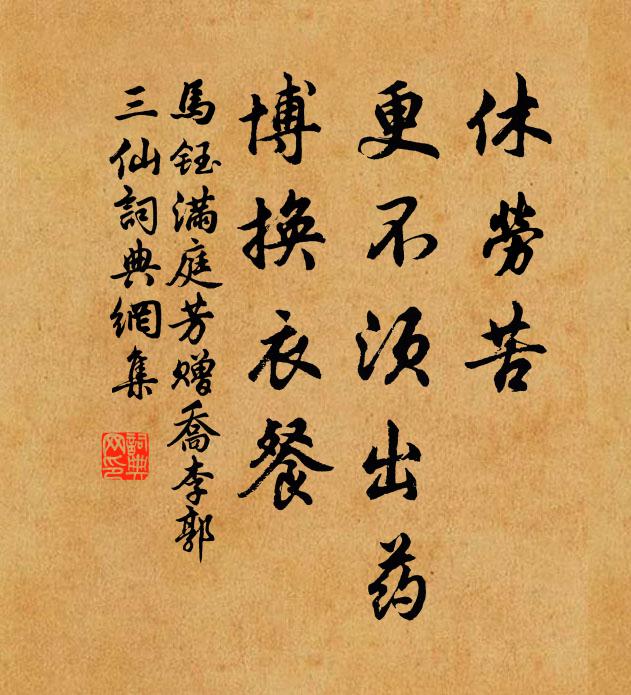 休勞苦
更不须出药
博换衣餐
馬鈺满庭芳赠喬李郭
三仙詞典網集
詞典网印